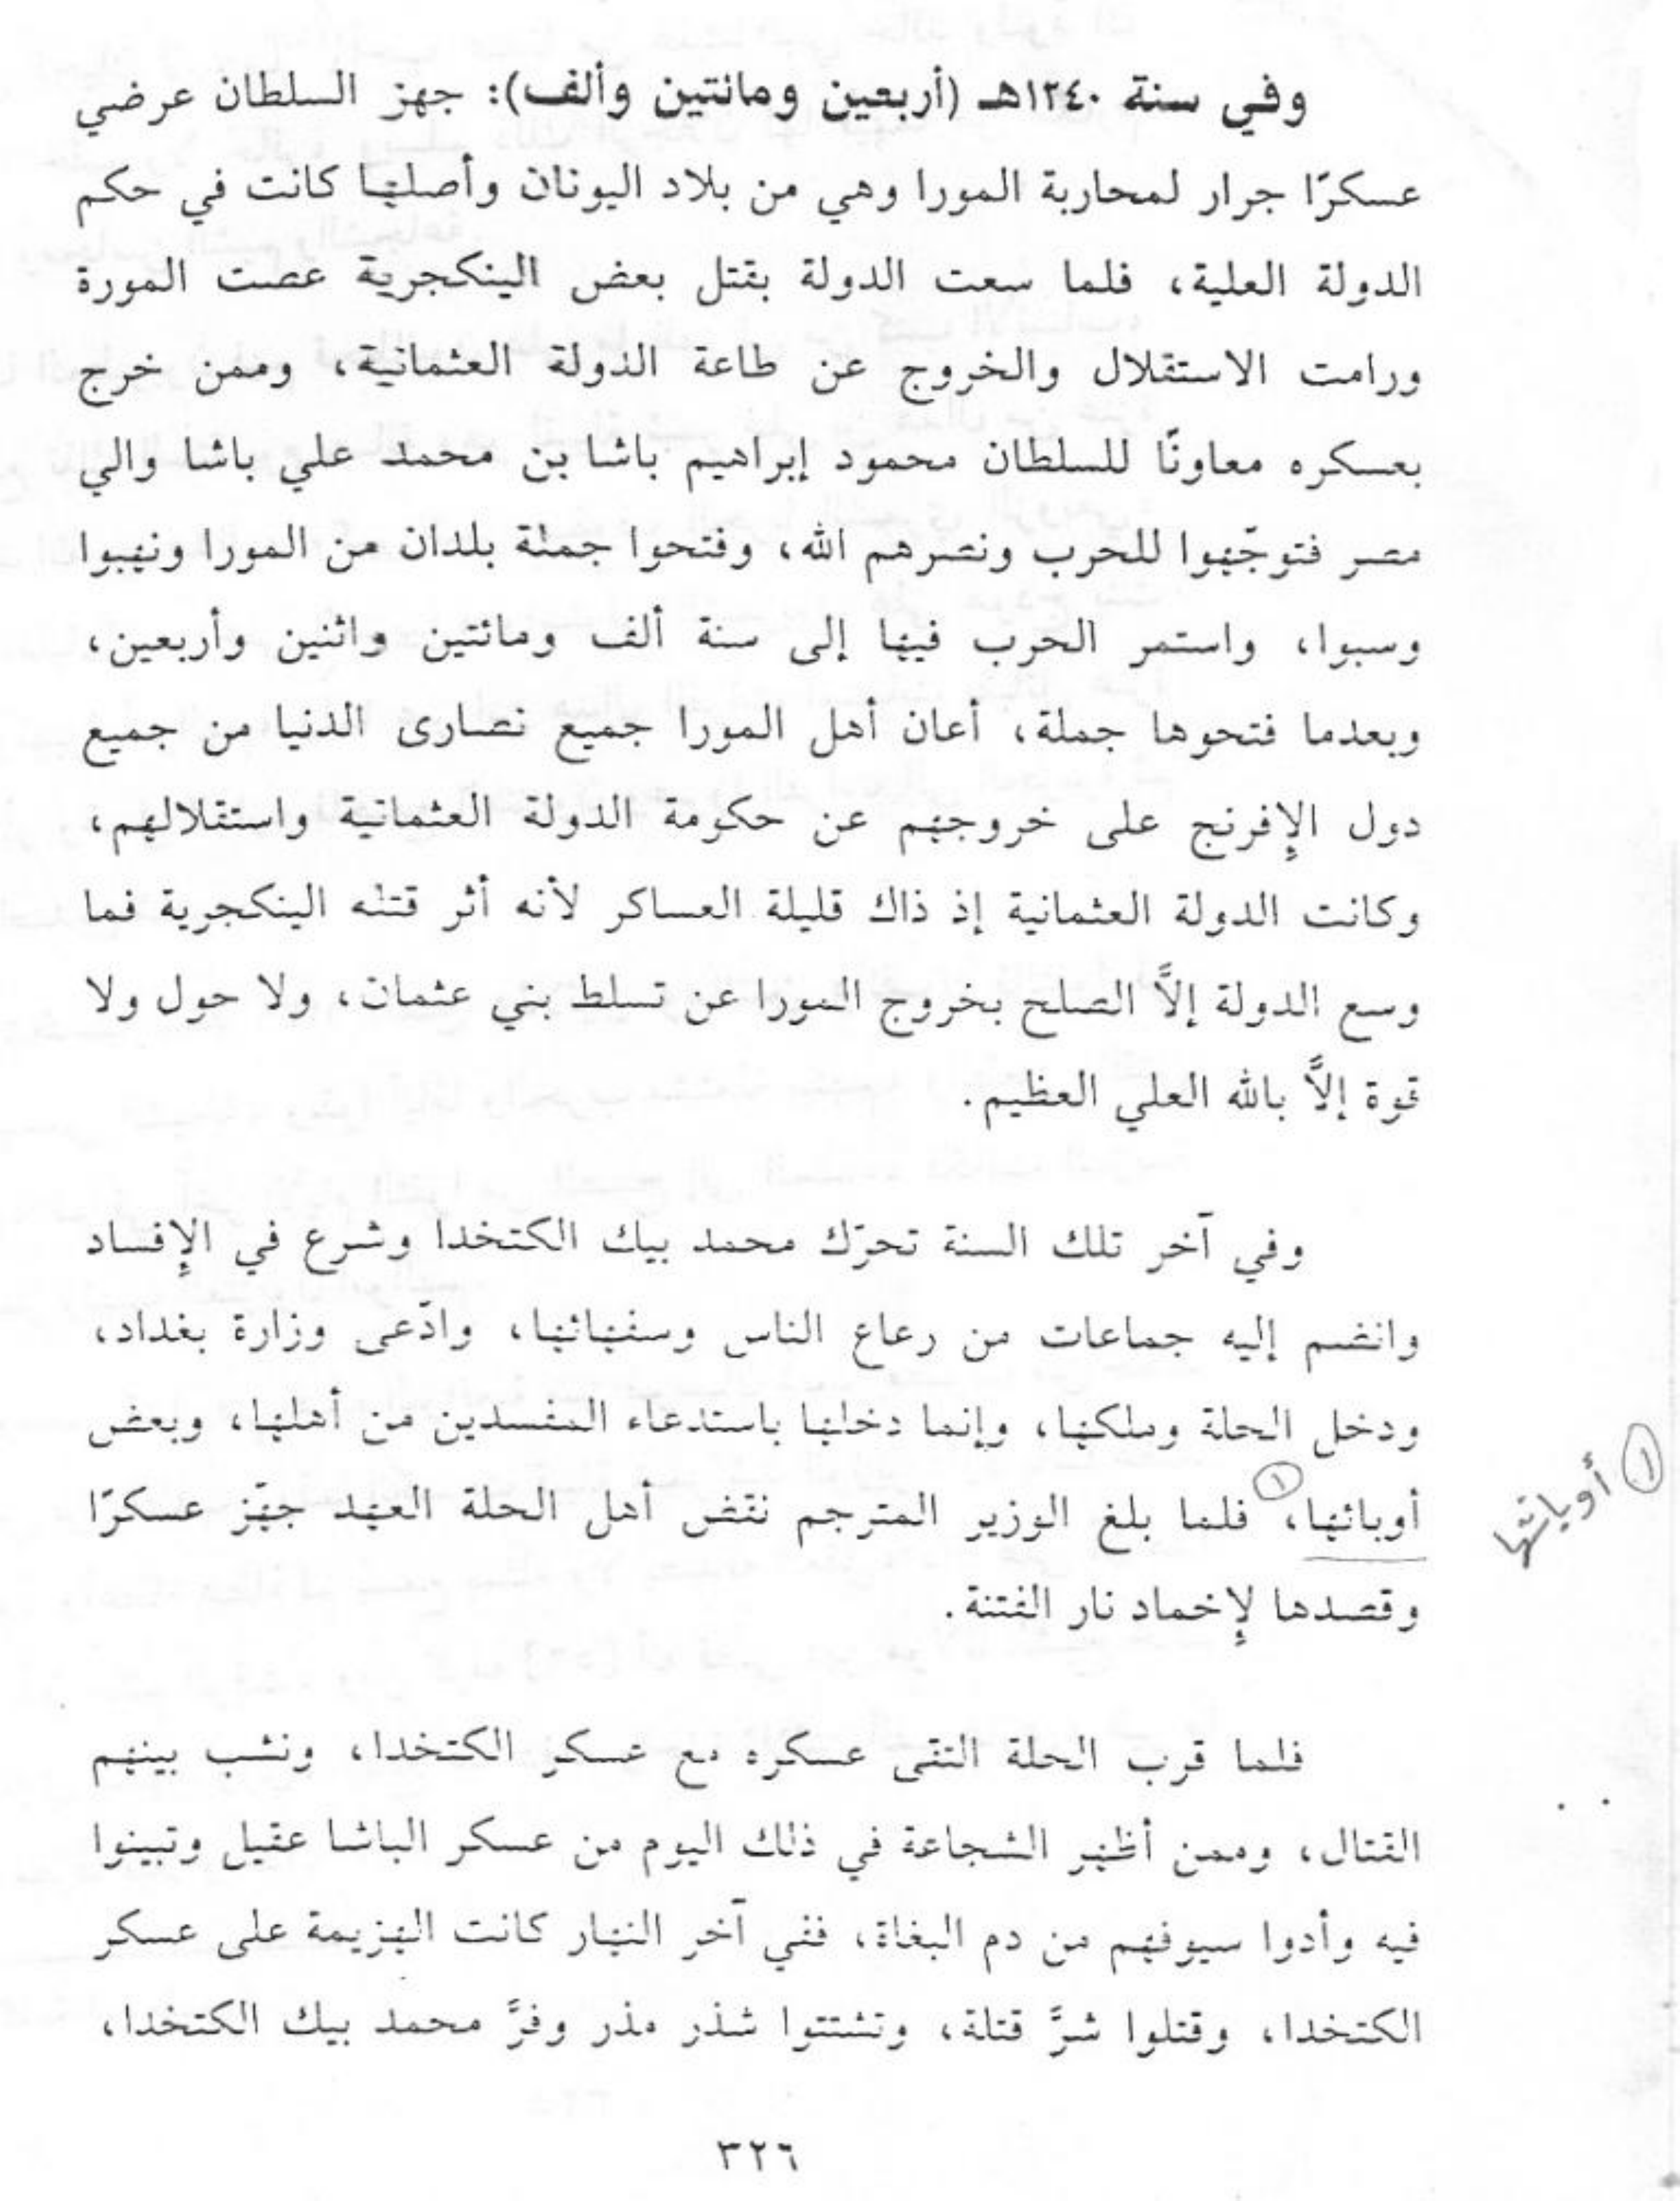 وفي سنة ١٢٤٠هـ (أربعين ومائتين وألف): جهز السلطان عرضي
عسكرًا جرار لمحاربة المورا وهي من بلاد اليونان وأصلها كانت في حكم
الدولة العلية، فلما سعت الدولة بقتل بعض الينكجرية عصت المورة
ورامت الاستقلال والخروج عن طاعة الدولة العثمانية، وممن خرج
بعسكره معاونًا للسلطان محمود إبراهيم باشا بن محمد علي باشا والي
مصر فتوجّهوا للحرب ونصرهم الله، وفتحوا جملة بلدان من المورا ونهبوا
وسبوا، واستمر الحرب فيها إلى سنة ألف ومائتين واثنين وأربعين،
وبعدما فتحوها جملة، أعان أهل المورا جميع نصارى الدنيا من جميع
دول الإفرنج على خروجهم عن حكومة الدولة العثمانية واستقلالهم،
وكانت الدولة العثمانية إذ ذاك قليلة العساكر لأنه أثر قتله الينكجرية فما
وسع الدولة إلاَّ الصلح بخروج المورا عن تسلط بني عثمان، ولا حول ولا
قوة إلاَّ بالله العلي العظيم.
وفي آخر تلك السنة تحرّك محمد بيك الكتخدا وشرع في الإفساد
وانضم إليه جماعات من رعاع الناس وسفهائها، وادّعى وزارة بغداد،
ودخل الحلة وملكها، وإنما دخلها باستدعاء المفسدين من أهلها، وبعض
أوبائها، (١) فلما بلغ الوزير المترجم نقض أهل الحلة العهد جهّز عسكرًا
(١) أوباشها
وقصدها لإخماد نار الفتنة.
فلما قرب الحلة التقى عسكره مع عسكر الكتخدا، ونشب بينهم
القتال، وممن أظهر الشجاعة في ذلك اليوم من عسكر الباشا عقيل وتبينوا
فيه وأدوا سيوفهم من دم البغاة، ففي آخر النهار كانت الهزيمة على عسكر
الكتخدا، وقتلوا شرَّ قتلة، وتشتتوا شذر مذر وفرَّ محمد بيك الكتخدا،
٣٢٦